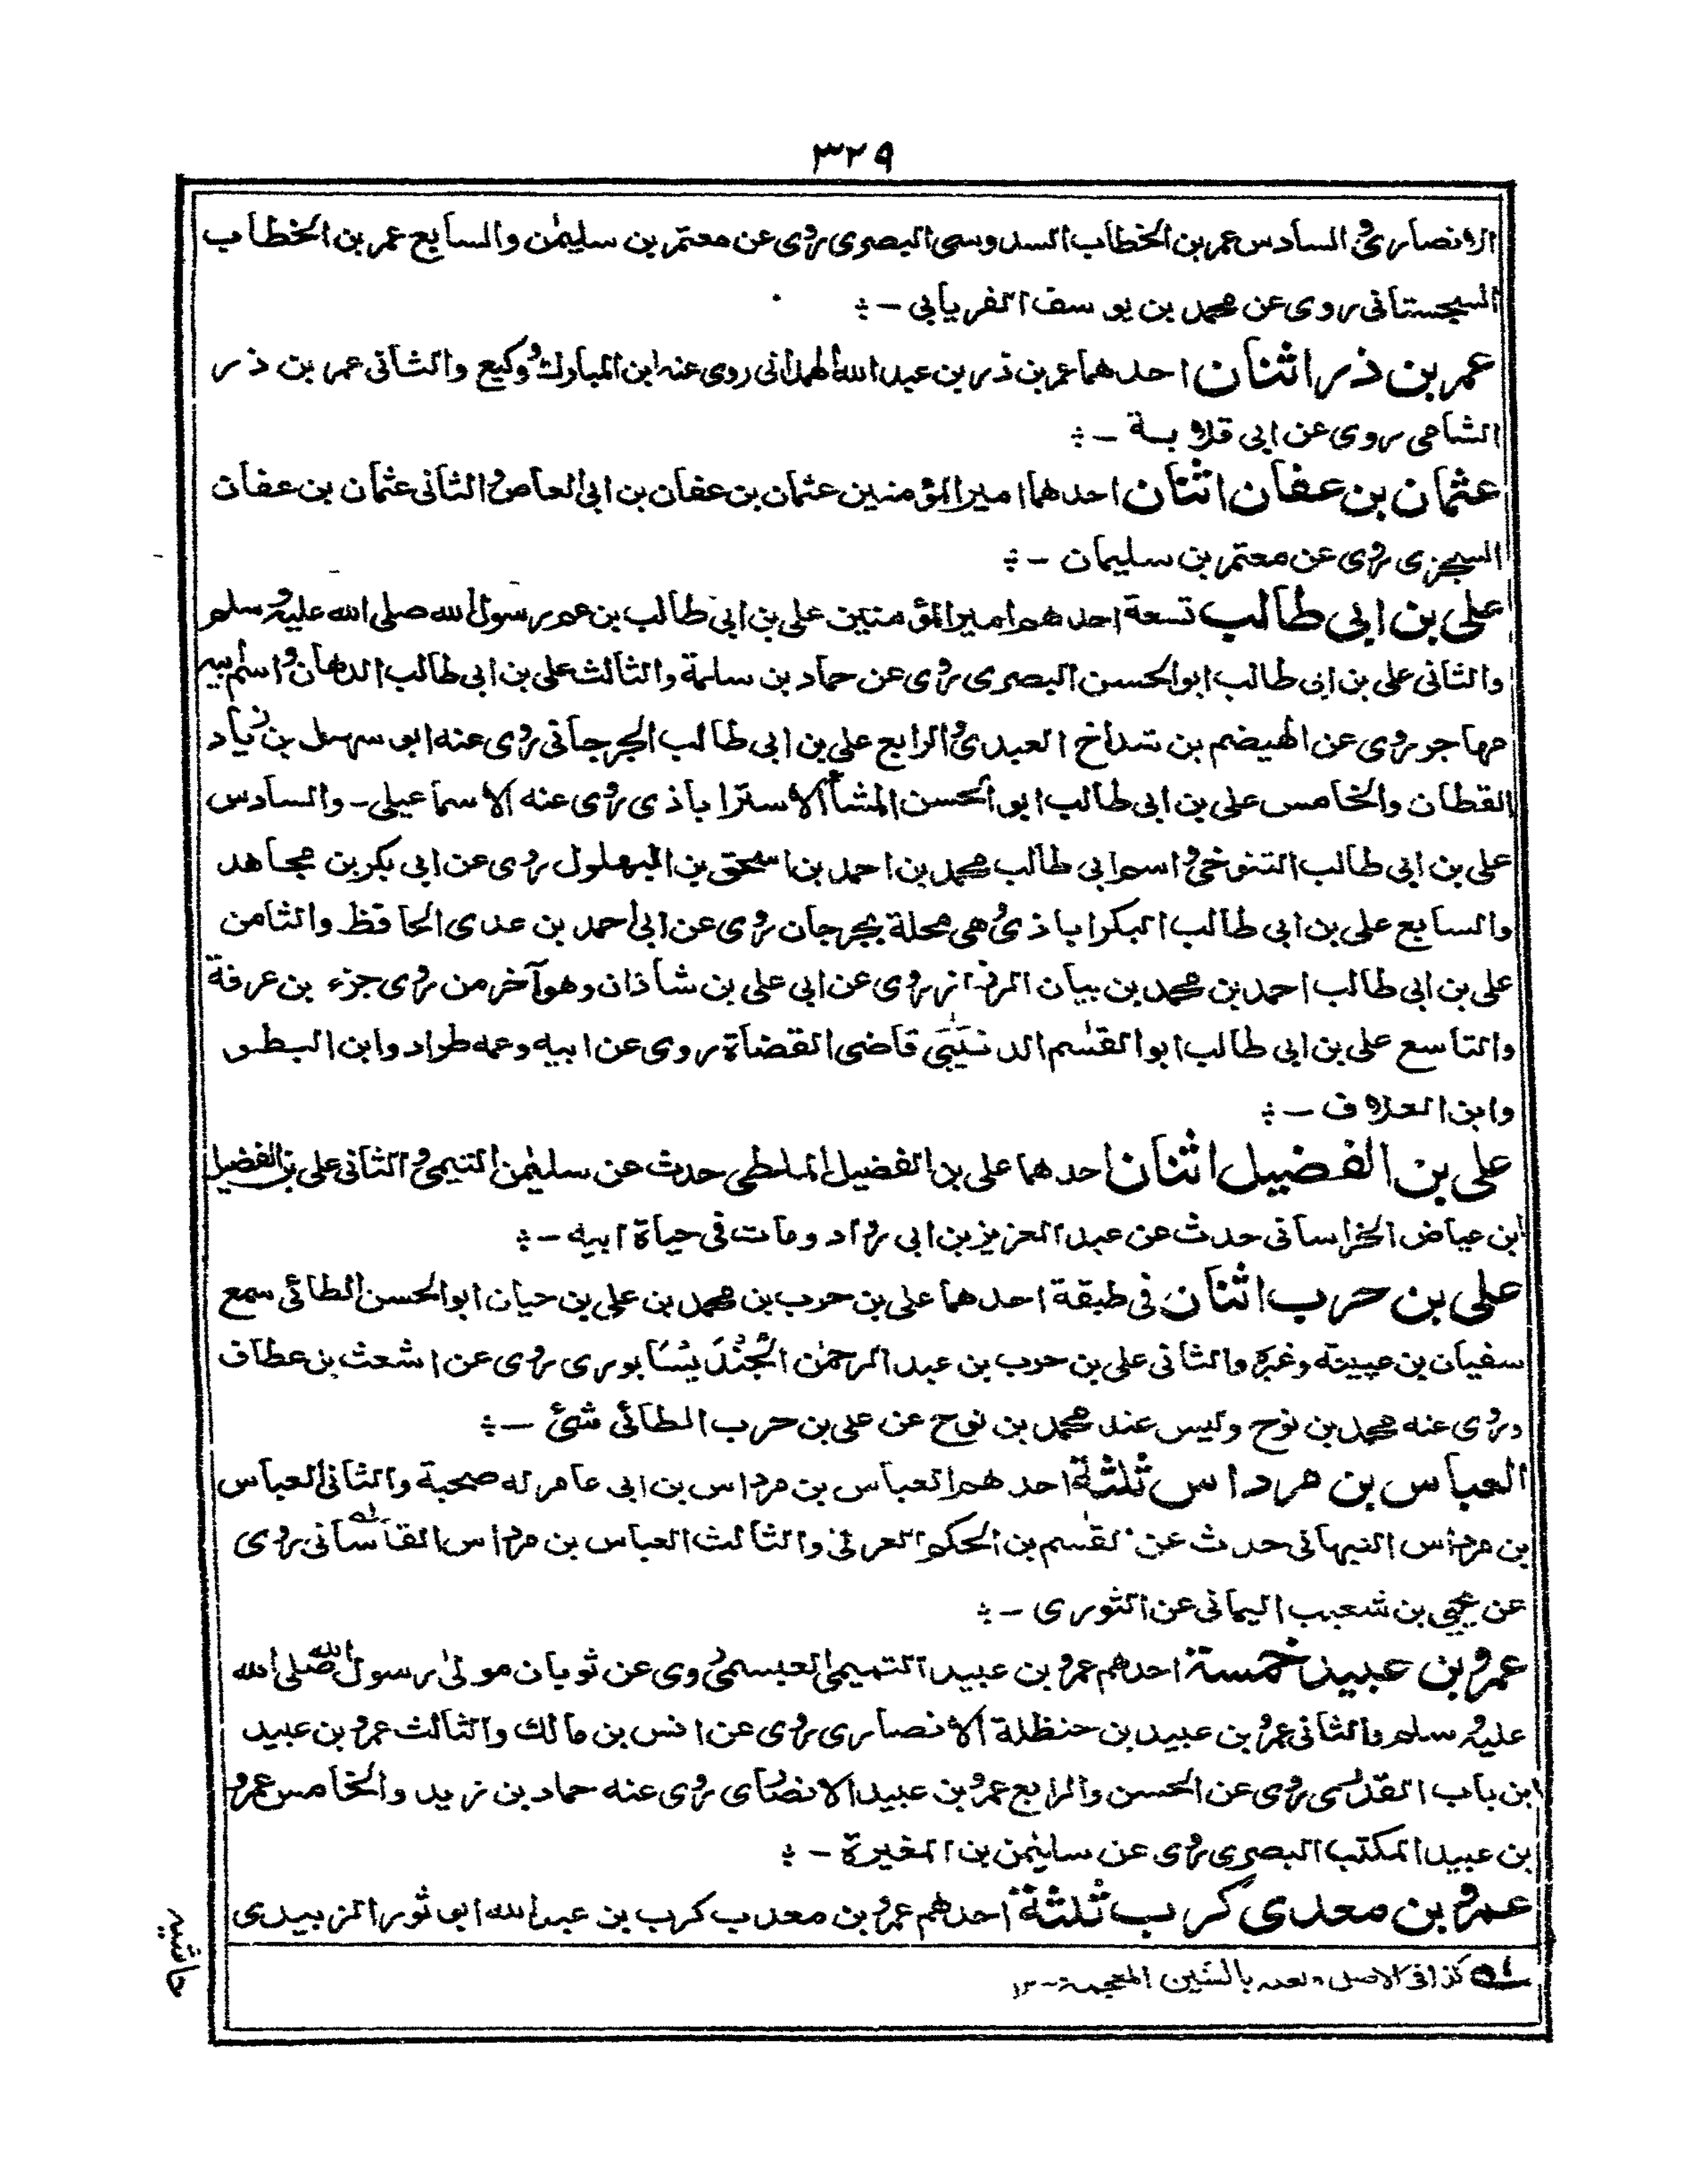 ٣٢٩
الانصاری والسادس عمر بن الخطاب السدوسی البصری روی عن معتمر بن سلیمٰن والسابع عمر بن الخطاب
السجستانی روی عن محمد بن یوسف الفریابی -
عمر بن ذر اثنان احدهما عمر بن ذر بن عبد الله الهمدانی روی عنه ابن المبارك ووکیع والثانی عمر بن ذر
الشامی روی عن ابی قلابة -
عثمان بن عفان اثنان احدهما امیر المؤمنین عثمان بن عفان بن ابی العاص والثانی عثمان بن عفان
السجزی روی عن معتمر بن سلیمان -
علی بن ابی طالب تسعة احدهم امیر المؤمنین علی بن ابی طالب بن عم رسول الله صلی الله علیه وسلم
والثانی علی بن ابی طالب ابو الحسن البصری روی عن حماد بن سلمة والثالث علی بن ابی طالب الدهان واسم ابیه
مهاجر روی عن الهیضم بن شداخ العبدی والرابع علی بن ابی طالب الجرجانی روی عنه ابو سهل بن زیاد
القطان والخامس علی بن ابی طالب ابو الحسن المشا الاستراباذی روی عنه الاسماعیلی - والسادس
علی بن ابی طالب التنوخی واسم ابی طالب محمد بن احمد بن اسحٰق بن البهلول روی عن ابی بکر بن مجاهد
والسابع علی بن ابی طالب البکراباذی وهی محلة بجرجان روی عن ابی احمد بن عدی الحافظ والثامن
علی بن ابی طالب احمد بن محمد بن بیان الرزاز روی عن ابی علی بن شاذان وهو آخر من روی جزء بن عرفة
والتاسع علی بن ابی طالب ابو القٰسم الزینبی قاضی القضاة روی عن ابیه وعمه طراد وابن البطر
وابن العلاف -
علی بن الفضیل اثنان احدهما علی بن الفضیل الملطی حدث عن سلیمٰن التیمی والثانی علی بن الفضیل
ابن عیاض الخراسانی حدث عن عبد العزیز بن ابی رواد ومات فی حیاة ابیه -
علی بن حرب اثنان فی طبقة احدهما علی بن حرب بن محمد بن علی بن حیان ابو الحسن الطائی سمع
سفیان بن عیینة وغیره والثانی علی بن حرب بن عبد الرحمٰن الجُنْدَیْسَابوری روی عن اشعث بن عطاف
وروی عنه محمد بن نوح ولیس عند محمد بن نوح عن علی بن حرب الطائی شئ -
العباس بن مرداس ثلثة احدهم العباس بن مرداس بن ابی عامر له صحبة والثانی العباس
بن مرداس النبهانی حدث عن القٰسم بن الحکم العرنی والثالث العباس بن مرداس القاسانی له روی
عن یحیی بن شعیب الیمانی عن الثوری -
عمرو بن عبید خمسة احدهم عمرو بن عبید التمیمی العبسمی روی عن ثوبان مولیٰ رسول الله صلی الله
علیه وسلم والثانی عمرو بن عبید بن حنظلة الانصاری روی عن انس بن مالك والثالث عمرو بن عبید
ابن باب القدری روی عن الحسن والرابع عمرو بن عبید الانصاری روی عنه حماد بن زید والخامس عمرو
بن عبید المکتب البصری روی عن سلیمٰن بن المغیرة -
عمرو بن معدی کرب ثلثة احدهم عمرو بن معدی کرب بن عبد الله ابو ثور الزبیدی
له کذا فی الاصل ولعله بالشین المعجمة - ١٢
حاشیه